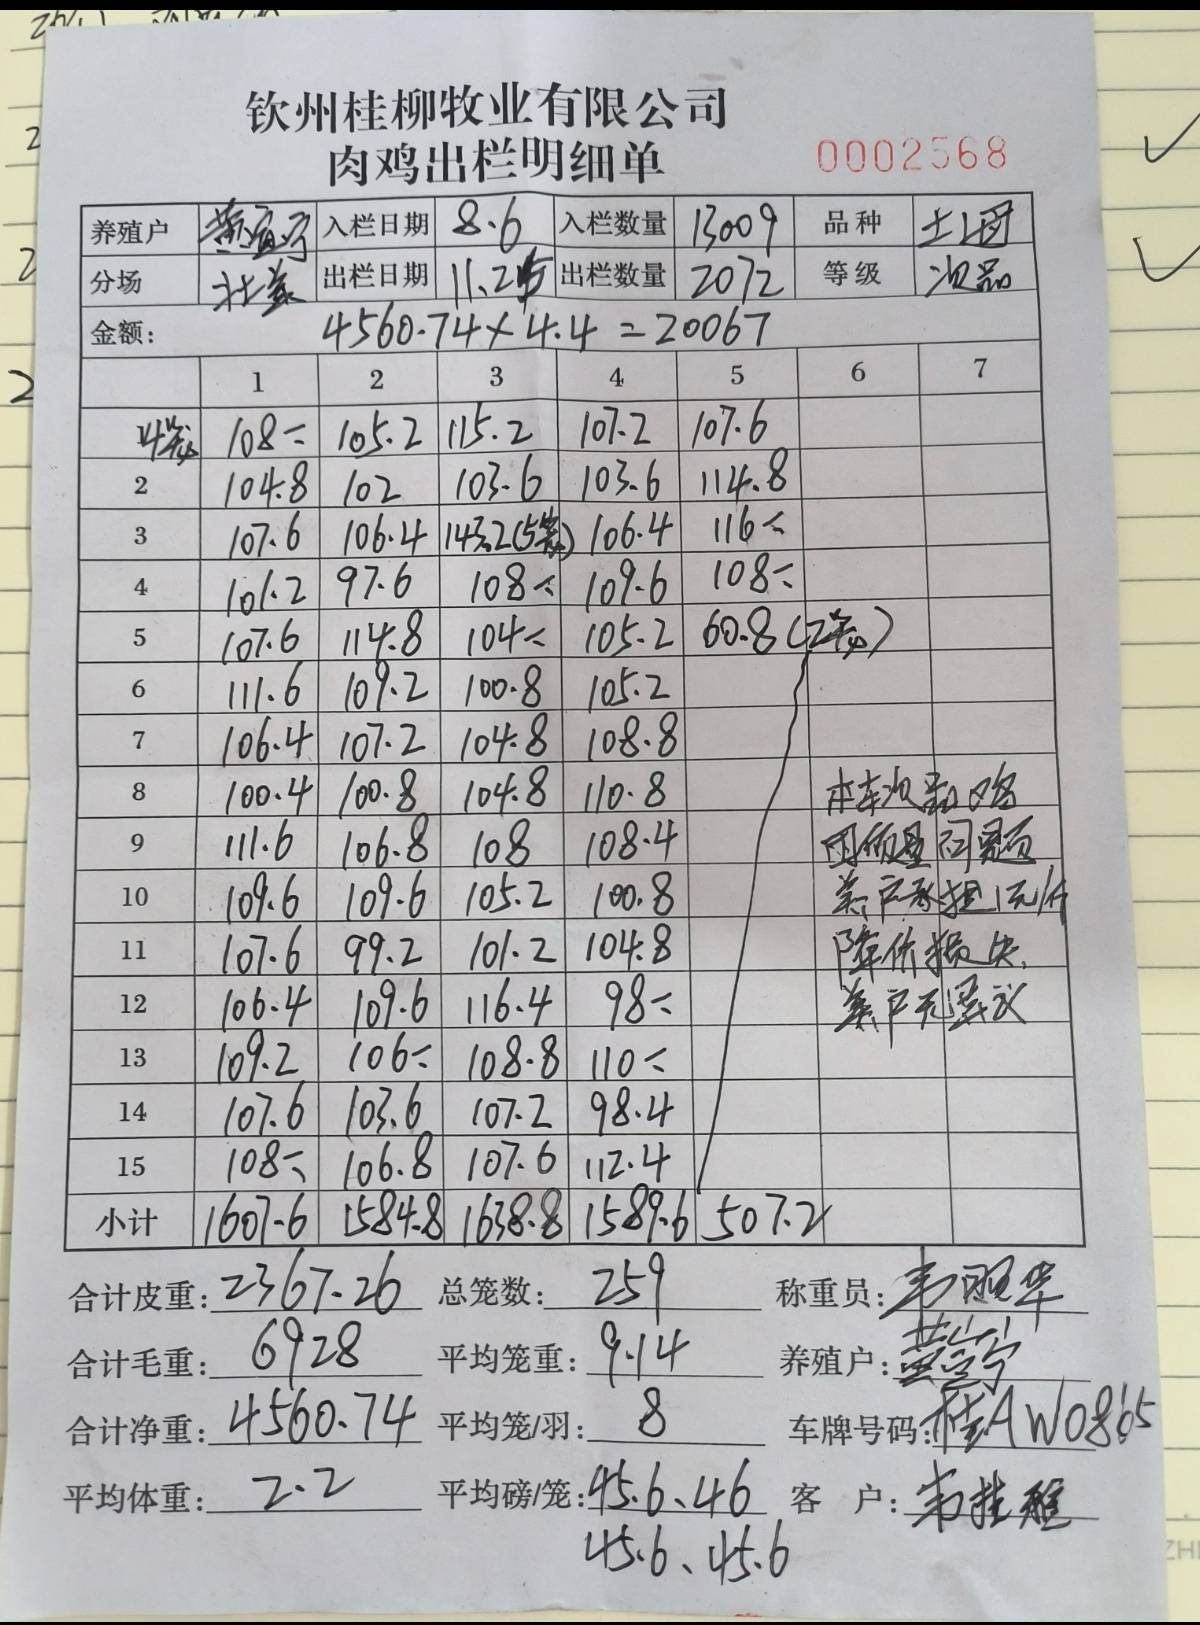 钦州桂柳牧业有限公司
肉鸡出栏明细单 0002568
养殖户 入栏日期 8.6 入栏数量 13009 品种 土2
分场 出栏日期 11.25 出栏数量 2072 等级 次品
金额: 4560.74×4.4=20067
1 2 3 4 5 6 7
4笼 108- 105.2 115.2 107.2 107.6
2 104.8 102 103.6 103.6 114.8
3 107.6 106.4 143.2(5笼) 106.4 116-
4 101.2 97.6 108- 109.6 108-
5 107.6 114.8 104- 105.2 60.8(2笼)
6 111.6 109.2 100.8 105.2
7 106.4 107.2 104.8 108.8
8 100.4 100.8 104.8 110.8 本车次品鸡
9 111.6 106.8 108 108.4 因质量问题
10 109.6 109.6 105.2 100.8 养户承担1元/斤
11 107.6 99.2 101.2 104.8 降价损失.
12 106.4 109.6 116.4 98- 养户无异议
13 109.2 106- 108.8 110-
14 107.6 103.6 107.2 98.4
15 108- 106.8 107.6 112.4
小计 1607.6 1584.8 1638.8 1589.6 507.2
合计皮重: 2367.26 总笼数: 259 称重员:
合计毛重: 6928 平均笼重: 9.14 养殖户:
合计净重: 4560.74 平均笼/羽: 8 车牌号码: 桂AW0865
平均体重: 2.2 平均磅/笼: 45.6、46 客户: 韦桂
45.6、45.6